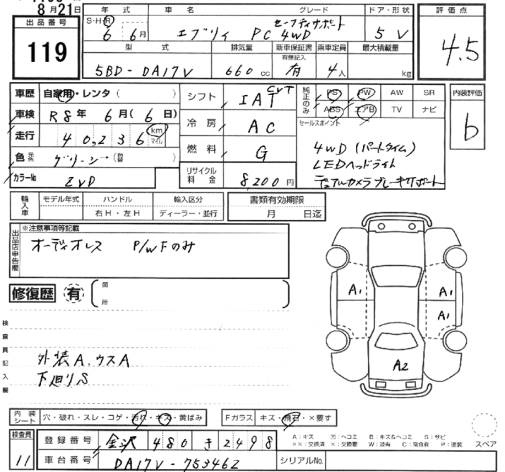 8月21日
出品番号
119
年式 車名 グレード ドア・形状 評価点
S・H・R セーフティサポート
6 6月 エブリィ PC 4WD 5 V 4.5
型式 排気量 新車保証書 乗車定員 最大積載量
有無記入
5BD-DA17V 660cc 有 4人 kg
車歴 自家用・レンタ
車検 R8年 6月(6日)
走行 40,236 km マイル
色 グリーン
カラーNo ZVD
シフト IAT CVT
冷房 AC
燃料 G
リサイクル料金 8200円
純正のみ PS PW AW SR
ABS エアB TV ナビ
セールスポイント
4WD(パートタイム)
LEDヘッドライト
デュアルカメラブレーキサポート
内装評価
b
輸入車 モデル年式 ハンドル 輸入区分 書類有効期限
右H・左H ディーラー・並行 月 日迄
出品店申告欄 ※注意事項等記載
オーディオレス P/WFのみ
修復歴 有 箇所
検査員記入欄
外装A.ウスA
下廻りS
A1 A1
A2
内装シート 穴・破れ・スレ・コゲ・汚れ・キズ・黄ばみ
Fガラス キズ・飛石・×要す
検査員
11
登録番号 金沢 480 き 2498
車台番号 DA17V-753462
シリアルNo.
A:キズ U:ヘコミ B:キズ&ヘコミ S:サビ
スペア